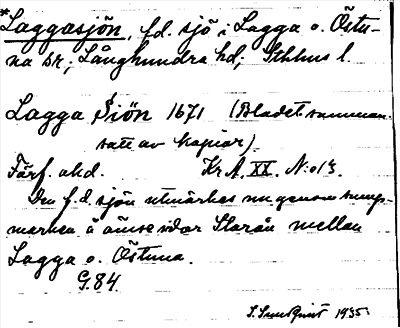 *Laggasjön, f.d. sjö i Lagga o. Östu-
na sn; Långhundra hd; Sthlms l.
Lagga Siön 1671 (Bladet samman-
satt av kopior).
Förf. okd. Kr.A. XX. N:o 13.
Den f.d. sjön utmärkes nu genom sump-
marken å ömse sidor Storån mellan
Lagga o. Östuna.
G.84.
S. Sundqvist 1935